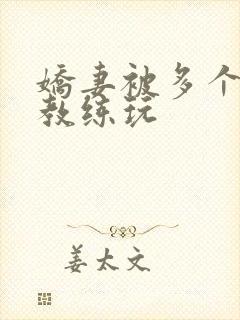 嬌妻被多个
教练玩
姜太文